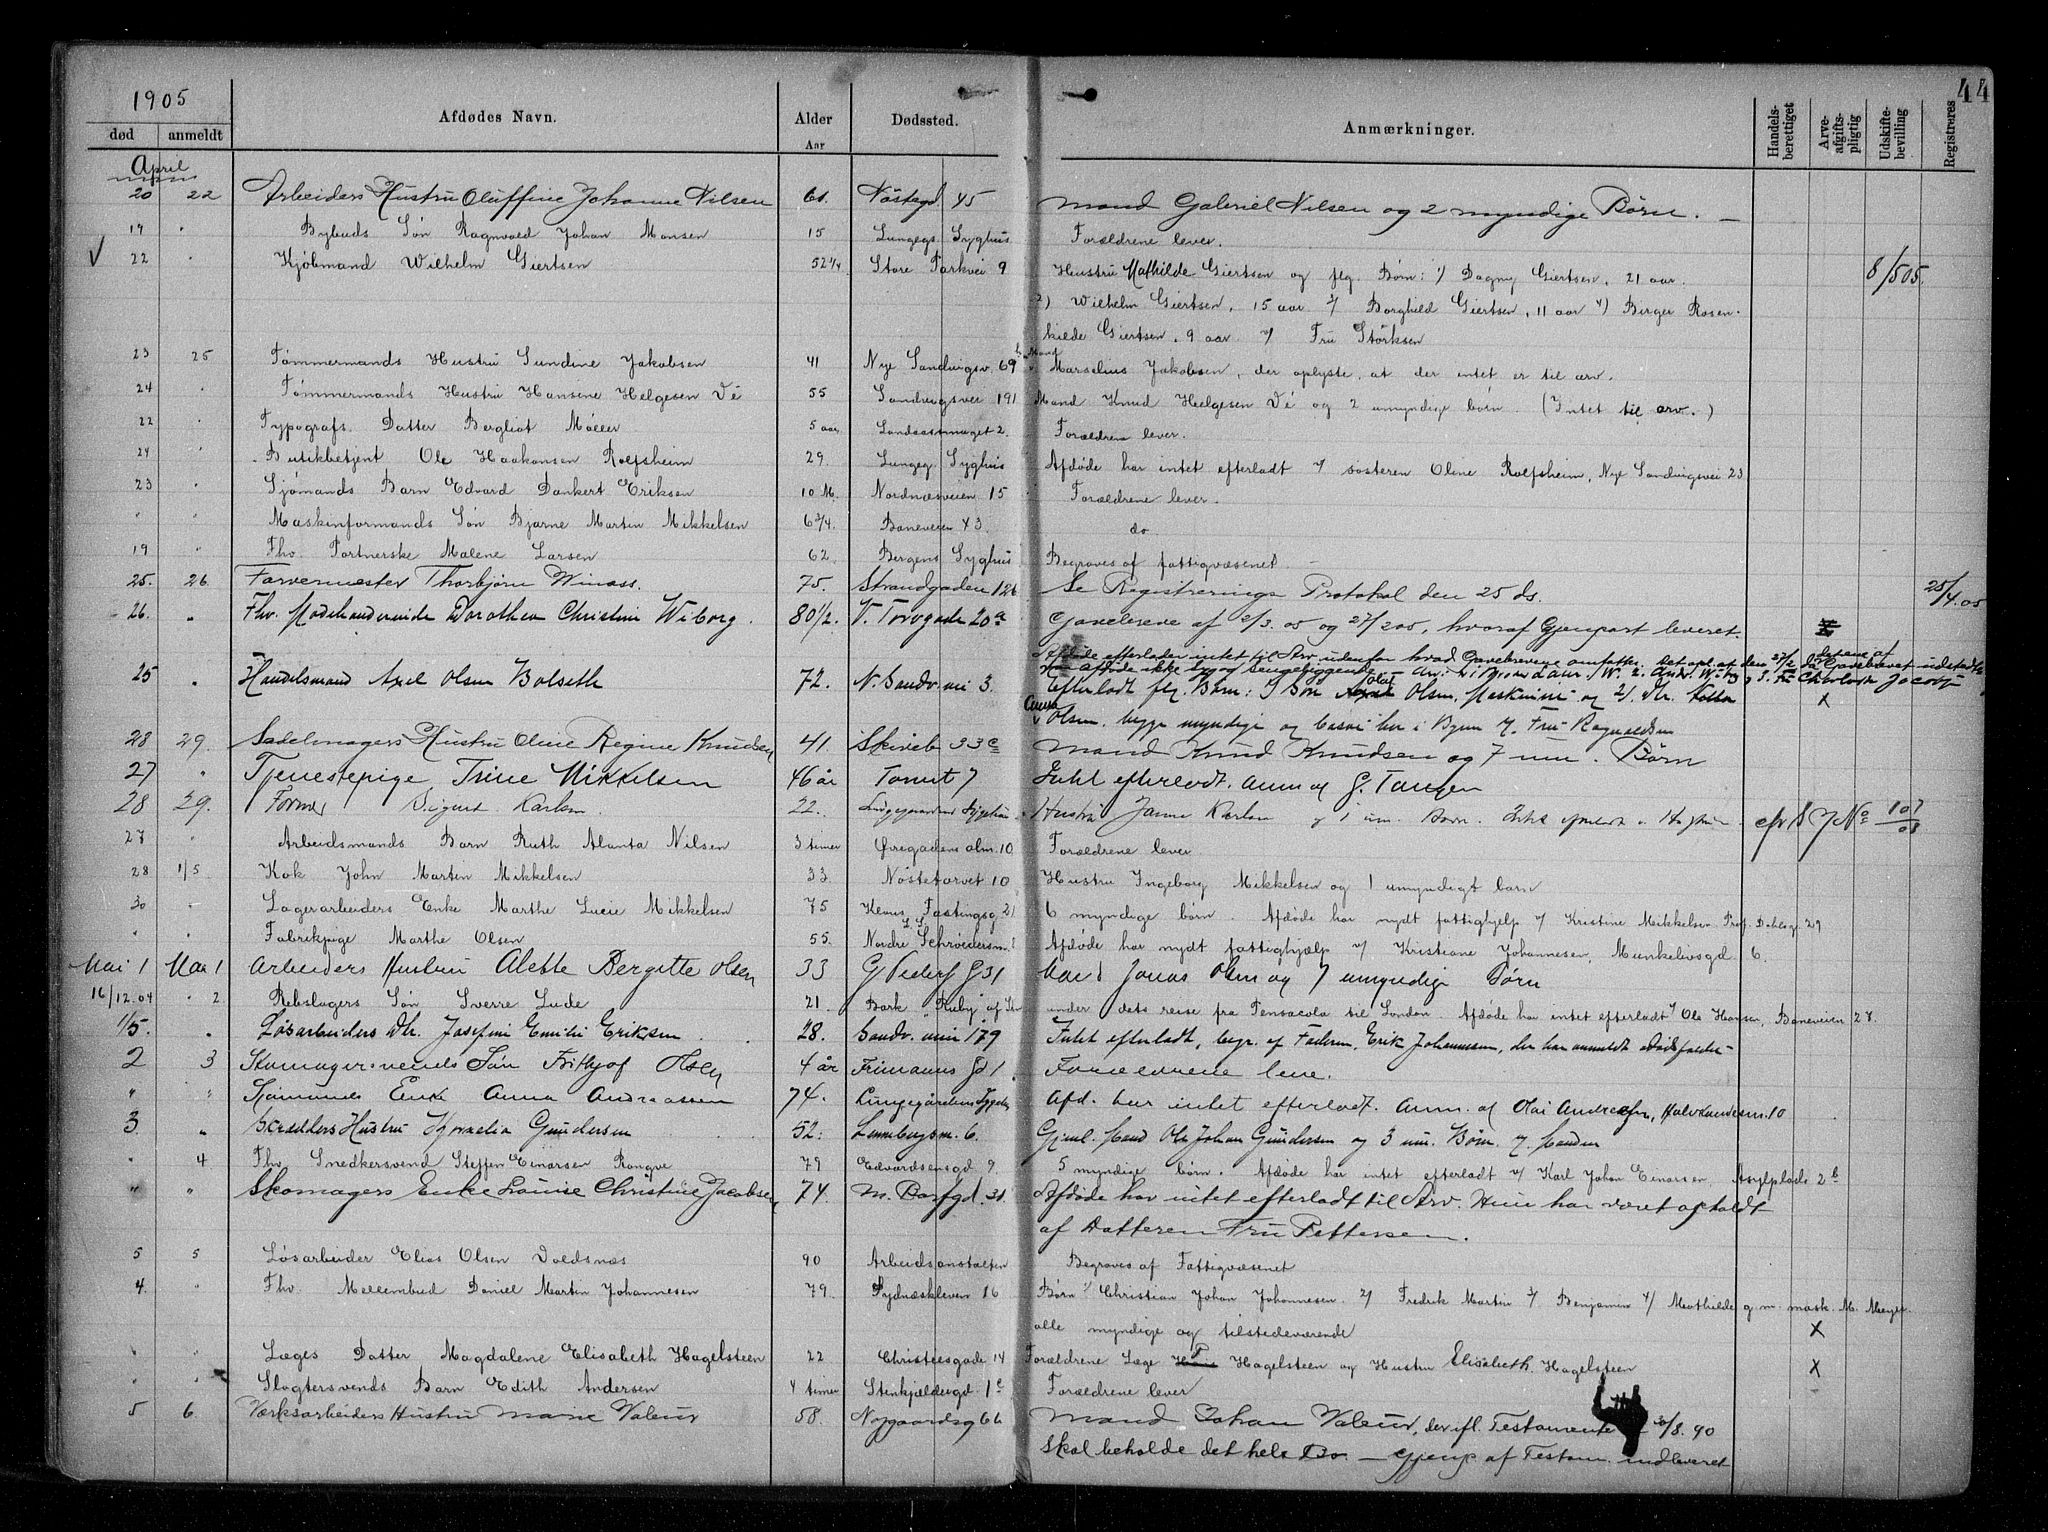 44
1905
død anmeldt Afdødes Navn. Alder Aar Dødssted. Anmærkninger. Handels-berettiget Arve-afgifts-pligtig Udskifte-bevilling Registreres
April
20 22 Arbeiders Hustru Oluffine Johanne Nilsen 61. Nøstegd. 45 Mand Gabriel Nilsen og 2 myndige Børn. —
19 " Bybuds Søn Ragnvald Johan Monsen 15 Lungegs. Syghus Forældrene lever.
√ 22 " Kjøbmand Wilhelm Giertsen 52 1/4 Store Parkvei 9 Hustru Mathilde Giertsen og flg. Børn: 1) Dagny Giertsen, 21 aar. 8/5 05.
2) Wilhelm Giertsen, 15 aar 3/ Borghild Giertsen, 11 aar 4) Birger Rosen-
kilde Giertsen, 9 aar. v/ Fru Størksen
23 25 Tømmermands Hustru Sundine Jakobsen 41 Nye Sandvigsv. 69 b Mand
Marselius Jakobsen, der oplyste, at der intet er til arv.
24 " Tømmermands Hustru Hansine Helgesen Vé 55 Sandvigsvei 191 Mand Knud Helgesen Vé og 2 umyndige børn. (Intet til arv.)
22 " Typografs Datter Bergliot Møller 5 aar. 2. Forældrene lever.
24 " Butikbetjent Ole Haakonsen Rolfsheim 29. Lungeg. Syghus Afdøde har intet efterladt v/ søsteren Oline Rolfsheim, Nye Sandvigsvei 23
23 " Sjømands Barn Edvard Dankert Eriksen 10 M. Nordnæsveien 15 Forældrene lever.
" " Maskinformands Søn Bjarne Martin Mikkelsen 6 3/4. Baneveien 43. do
19 " Fhv. Portnerske Malene Larsen 62. Bergens Syghus Begraves af fattigvæsenet. —
25. 26. Farvermester Thorbjørn Winæss. 75. Strandgaden 126 Se Registrerings Protokol den 25 ds. 25/4.05
26. " Fhv. Modehandlerinde Dorothea Christine Wiborg. 80 1/2. V. Torvgade 20a Gavebreve af 2/3.05 og 27/2 05, hvoraf Gjenpart leveret.
Afdøde efterlader intet til Arv udenfor hvad Gavebrevene omfatter.
25 " Handelsmand Axel Olsen Bolseth 72. N. Sandv. vei 3. Efterladt flg. Børn: 1) Olaf Olsen, Maskinist og 2). Dtr. X
Anna Olsen, begge myndige og bosat her i Byen v/ Fru Ragnvaldsen
28 29. Sadelmagers Hustru Oline Regine Knudsen 41. Skiveb. 33c Mand Knud Knudsen og 7 um. Børn
27 " Tjenestepige Trine Mikkelsen 46 år Torvet 7 Intet efterladt. Anm af G. Tangen
28 29. Former Sigurd Karlsen. 22. Lungegaardens Sygehus Hustru Janna Karlsen og 1 um. Barn. cfr S J No 107/08
27 Arbeidsmands Barn Ruth Alanta Nilsen 3 timer Øregadens alm. 10 Forældrene lever
28 1/5 Kok John Martin Mikkelsen 33. Nøstetorvet 10 Hustru Ingeborg Mikkelsen og 1 umyndigt barn
30 " Lagerarbeiders Enke Marthe Lucie Mikkelsen 75 Klaus Fastingsg. 21 6 myndige børn. Afdøde har nydt fattighjelp v/ Kristine Mikkelsen Prof. Dahlsg. 29
" " Fabrikpige Marthe Olsen 55. Nordre Schrøedersm. Afdøde har nydt fattighjælp v/ Kristiane Johannesen, Munkelivsgd 6.
Mai 1 Mai 1 Arbeiders Hustru Alette Bergitte Olsen 33 G Peders G 31 Mand Jonas Olsen og 7 umyndige Børn
16/12.04 " 2 Rebslagers Søn Sverre Lude 21. Bark "Ruby" af under dets reise fra Pensacola til London. Afdøde har intet efterladt v/ Ole Hansen, Baneveien 28.
1/5. " Løsarbeiders Dtr. Josefine Emilie Eriksen. 28. Sandv. veien 179 Intet efterladt, begr. af Faderen, Erik Johannesen, der har anmeldt dødsfaldet —
2 3 Skomagersvends Søn Fritjof Olsen 4 år Frimanns Gd 1. Forældrene leve.
" " Sjømands Enke Anna Andreassen 74. Lungegårdens Sygehs Afd. har intet efterladt. Anm. af Olai Andreassen, Halvkandesm. 10
3. " Skrædders Hustru Kornelia Gundersen 52. Lenebergsm. 6. Gjenl. Mand Ole Johan Gundersen og 3 um. Børn. v. Manden
" 4 Fhv Snedkersvend Steffen Einarsen Rongve 79 Edvardsensgd 9. 5 myndige børn. Afdøde har intet efterladt v/ Karl Johan Einarsen, Asylplads 2b
" " Skomagers Enke Louise Christine Jacobsen 74. M. Barfgd. 31. Afdøde har intet efterladt til Arv. Hun har været opholdt
af Datteren Fru Pettersen.
5 5 Løsarbeider Elias Olsen Voldsnæs 90 Arbeidsanstalten Begraves af Fattigvæsenet
4. " Fhv. Mellembud Daniel Martin Johannesen 79. Sydnæskleven 16 Børn 1/ Christian Johan Johannesen 2/ Fredrik Martin 3/ Benjamin 4/ Mathilde g. m. mask. M. Meyer
alle myndige og tilstedeværende X
" " Læges Datter Magdalene Elisabeth Hagelsteen 22 Christiesgade 14 Forældrene Læge P Hagelsteen og Hustru Elisabeth Hagelsteen X
" " Slagtersvends Barn Edith Andersen 4 timer Stenkjeldergd. 1c Forældrene lever
5 6. Værksarbeiders Hustru Marie Valeur 58. Nygaardsg 66 Mand Johan Valeur, der ifl. Testamente /8.90
skal beholde det hele Bo. — Gjenp af Testam. indleveret